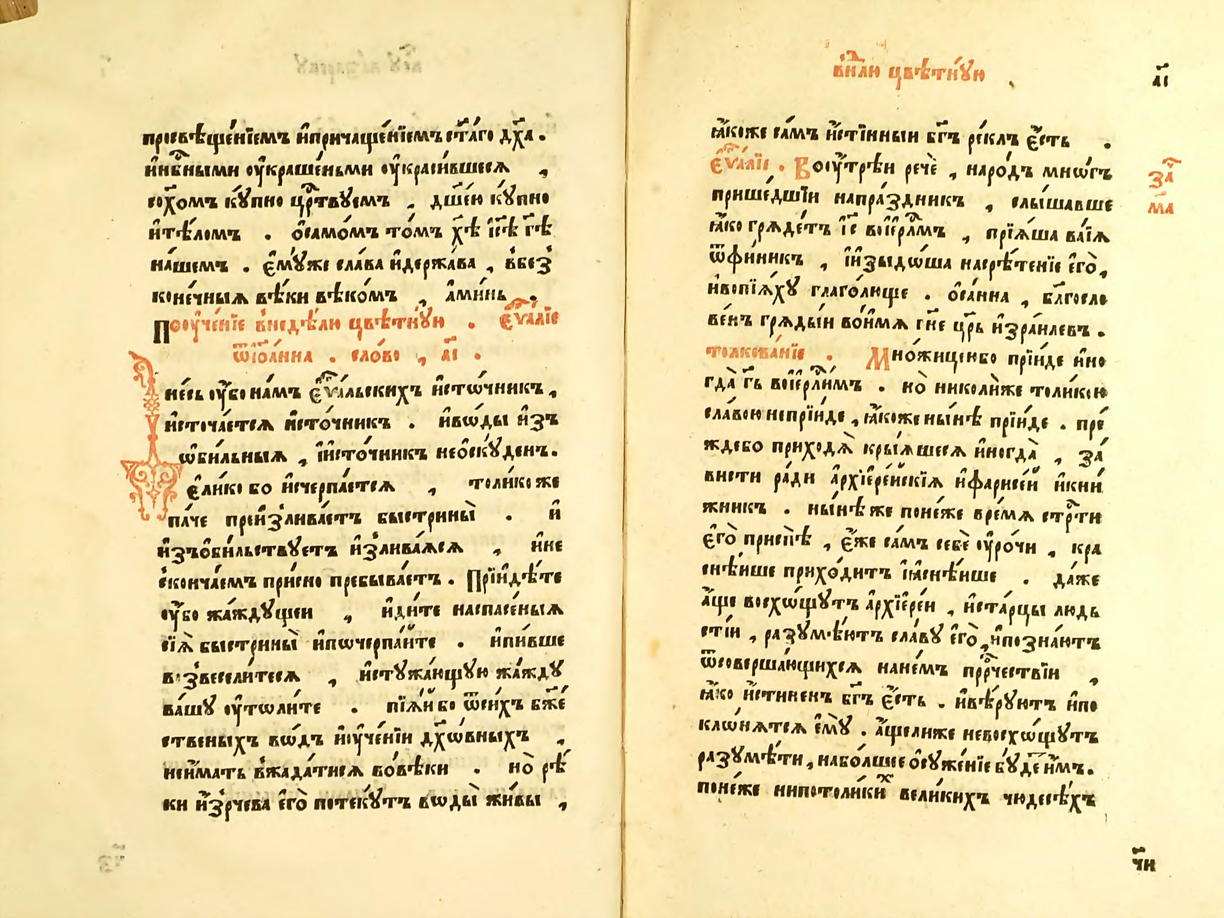 просвѣще́нїемъ и҆причаще́нїемъ ст҃а́го дх҃а .
и҆нбн҃ыми оу҆краше́ньми оу҆краси́вшеся ,
сох҃омъ кꙋ́пно црⷭ҇твꙋемъ , дш҃ею кꙋ́пно
и҆тѣ́ломъ . ѡ҆само́мъ то́мъ хрⷭ҇тѣ̀ і҆с҃ѣ гдⷭ҇ѣ
на́шемъ . є҆мꙋ́же сла́ва и҆держа́ва , вбез
коне́чныя вѣ́ки вѣко́мъ , а҆ми́нь .
Поуче́нїе внедѣ́лю цвѣ́тнꙋю . є҆ѵⷢ҇алїе
ѿіѡ҆а́нна . сло́во , а҃і .
Дне́сь оу҆́бо на́мъ є҆ѵⷢ҇а́льскихъ и҆сто́чникъ ,
и҆сточа́ется и҆сто́чникъ . и҆во́ды и҆зъ
ѡ҆би́льныя , і҆и҆сто́чникъ неѡскꙋ́денъ .
є҆ли́ко бо и҆счерпа́ется , толи́ко же
па́че преи҆злива́етъ быстрины̀ . и҆
и҆з̾ѡби́льствꙋетъ и҆злива́яся , и҆не
сконча́емъ при́сно пребыва́етъ . Прїиди́те
оу҆́бо жа́ждꙋщеи , и҆ди́те наспасе́ныя
сїя҆̀ быстрины̀ и҆поче́рпа́ите . и҆пи́вше
возвесели́теся , и҆стꙋжа́ющꙋю жа́ждꙋ
ва́шꙋ оу҆толи́те . пїя́и бо ѿси́хъ бж҃е
ственыхъ во́дъ и҆оуче́нїи дх҃о́вныхъ ,
неи҆мать вжада́тися вовѣ́ки . но̀ рѣ́
ки и҆зъчре́ва є҆го̀ потекꙋ́тъ во́ды жи́вы ,
внⷣлю цвѣ́тнꙋю
а҃і
ꙗ҆́коже са́мъ и҆́стинныи бг҃ъ ре́клъ є҆́сть .
є҆ѵⷢ҇алїе . Воꙋ҆трѣи речѐ , наро́дъ мно́гъ
прише́дшїи напра́здникъ , слы́шавше
ꙗ҆́ко гряде́тъ і҆с҃ воі҆ерⷭ҇ли́мъ , прїя́ша ва́їя
ѿфи́никъ , і҆и҆зыдо́ша насрѣ́тенїе є҆го̀ ,
и҆вопїя́хꙋ глаго́люще . ѡ҆са́нна , блгⷭ҇осло
ве́нъ гряды́и во́имя гн҃е цр҃ь и҆зра́илевъ .
толкова́нїе . Мно́жиценбо прїи́де и҆но
гда̀ гдⷭ҇ь воі҆ерⷭ҇ли́мъ . но̀ николи́же толи́кою
сла́вою неприи́де , ꙗ҆́коже ны́нѣ прїи́де . пре́
ждебо приходя̀ крыя́шеся и҆ногда̀ , за́
висти ра́ди а҆рхїере́йскїя и҆фарисе́й и҆кни́
жникъ . ны́нѣ же поне́же вре́мя стрⷭ҇ти
є҆го̀ приспѣ̀ , є҆́же са́мъ себѐ оу҆ро́чи , кра
снѣ́ише прихо́дитъ і҆ꙗ҆снѣ́ише . да́же
а҆́ще восхо́щꙋтъ а҆рхїере́и , и҆ста́рцы людь
сті́и , разꙋмѣ́ютъ сла́вꙋ є҆го̀ , и҆позна́ютъ
ѿсоверша́ющихся нане́мъ прⷪ҇ро́чествїи ,
ꙗ҆́ко и҆́стиненъ бг҃ъ є҆́сть . и҆вѣ́рꙋютъ и҆по
кло́нятся є҆мꙋ̀ . а҆́щелиже невосхо́щꙋтъ
разꙋмѣ́ти , набо́лшее ѡсꙋже́нїе бꙋ́дⷷ и҆́мъ .
поне́же нипотоли́кихъ вели́кихъ чюдесѣ́хъ
за҃
м҃а
ч҃и